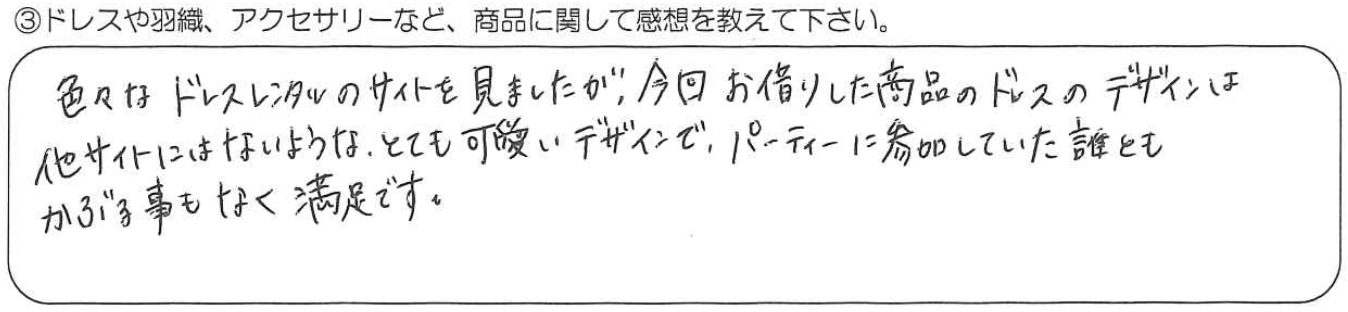 ③ドレスや羽織、アクセサリーなど、商品に関して感想を教えて下さい。
色々な ドレスレンタルのサイトを見ましたが、今回 お借りした商品のドレスのデザインは
他サイトにはないような、とても可愛いデザインで、パーティーに参加していた誰とも
かぶる事もなく満足です。